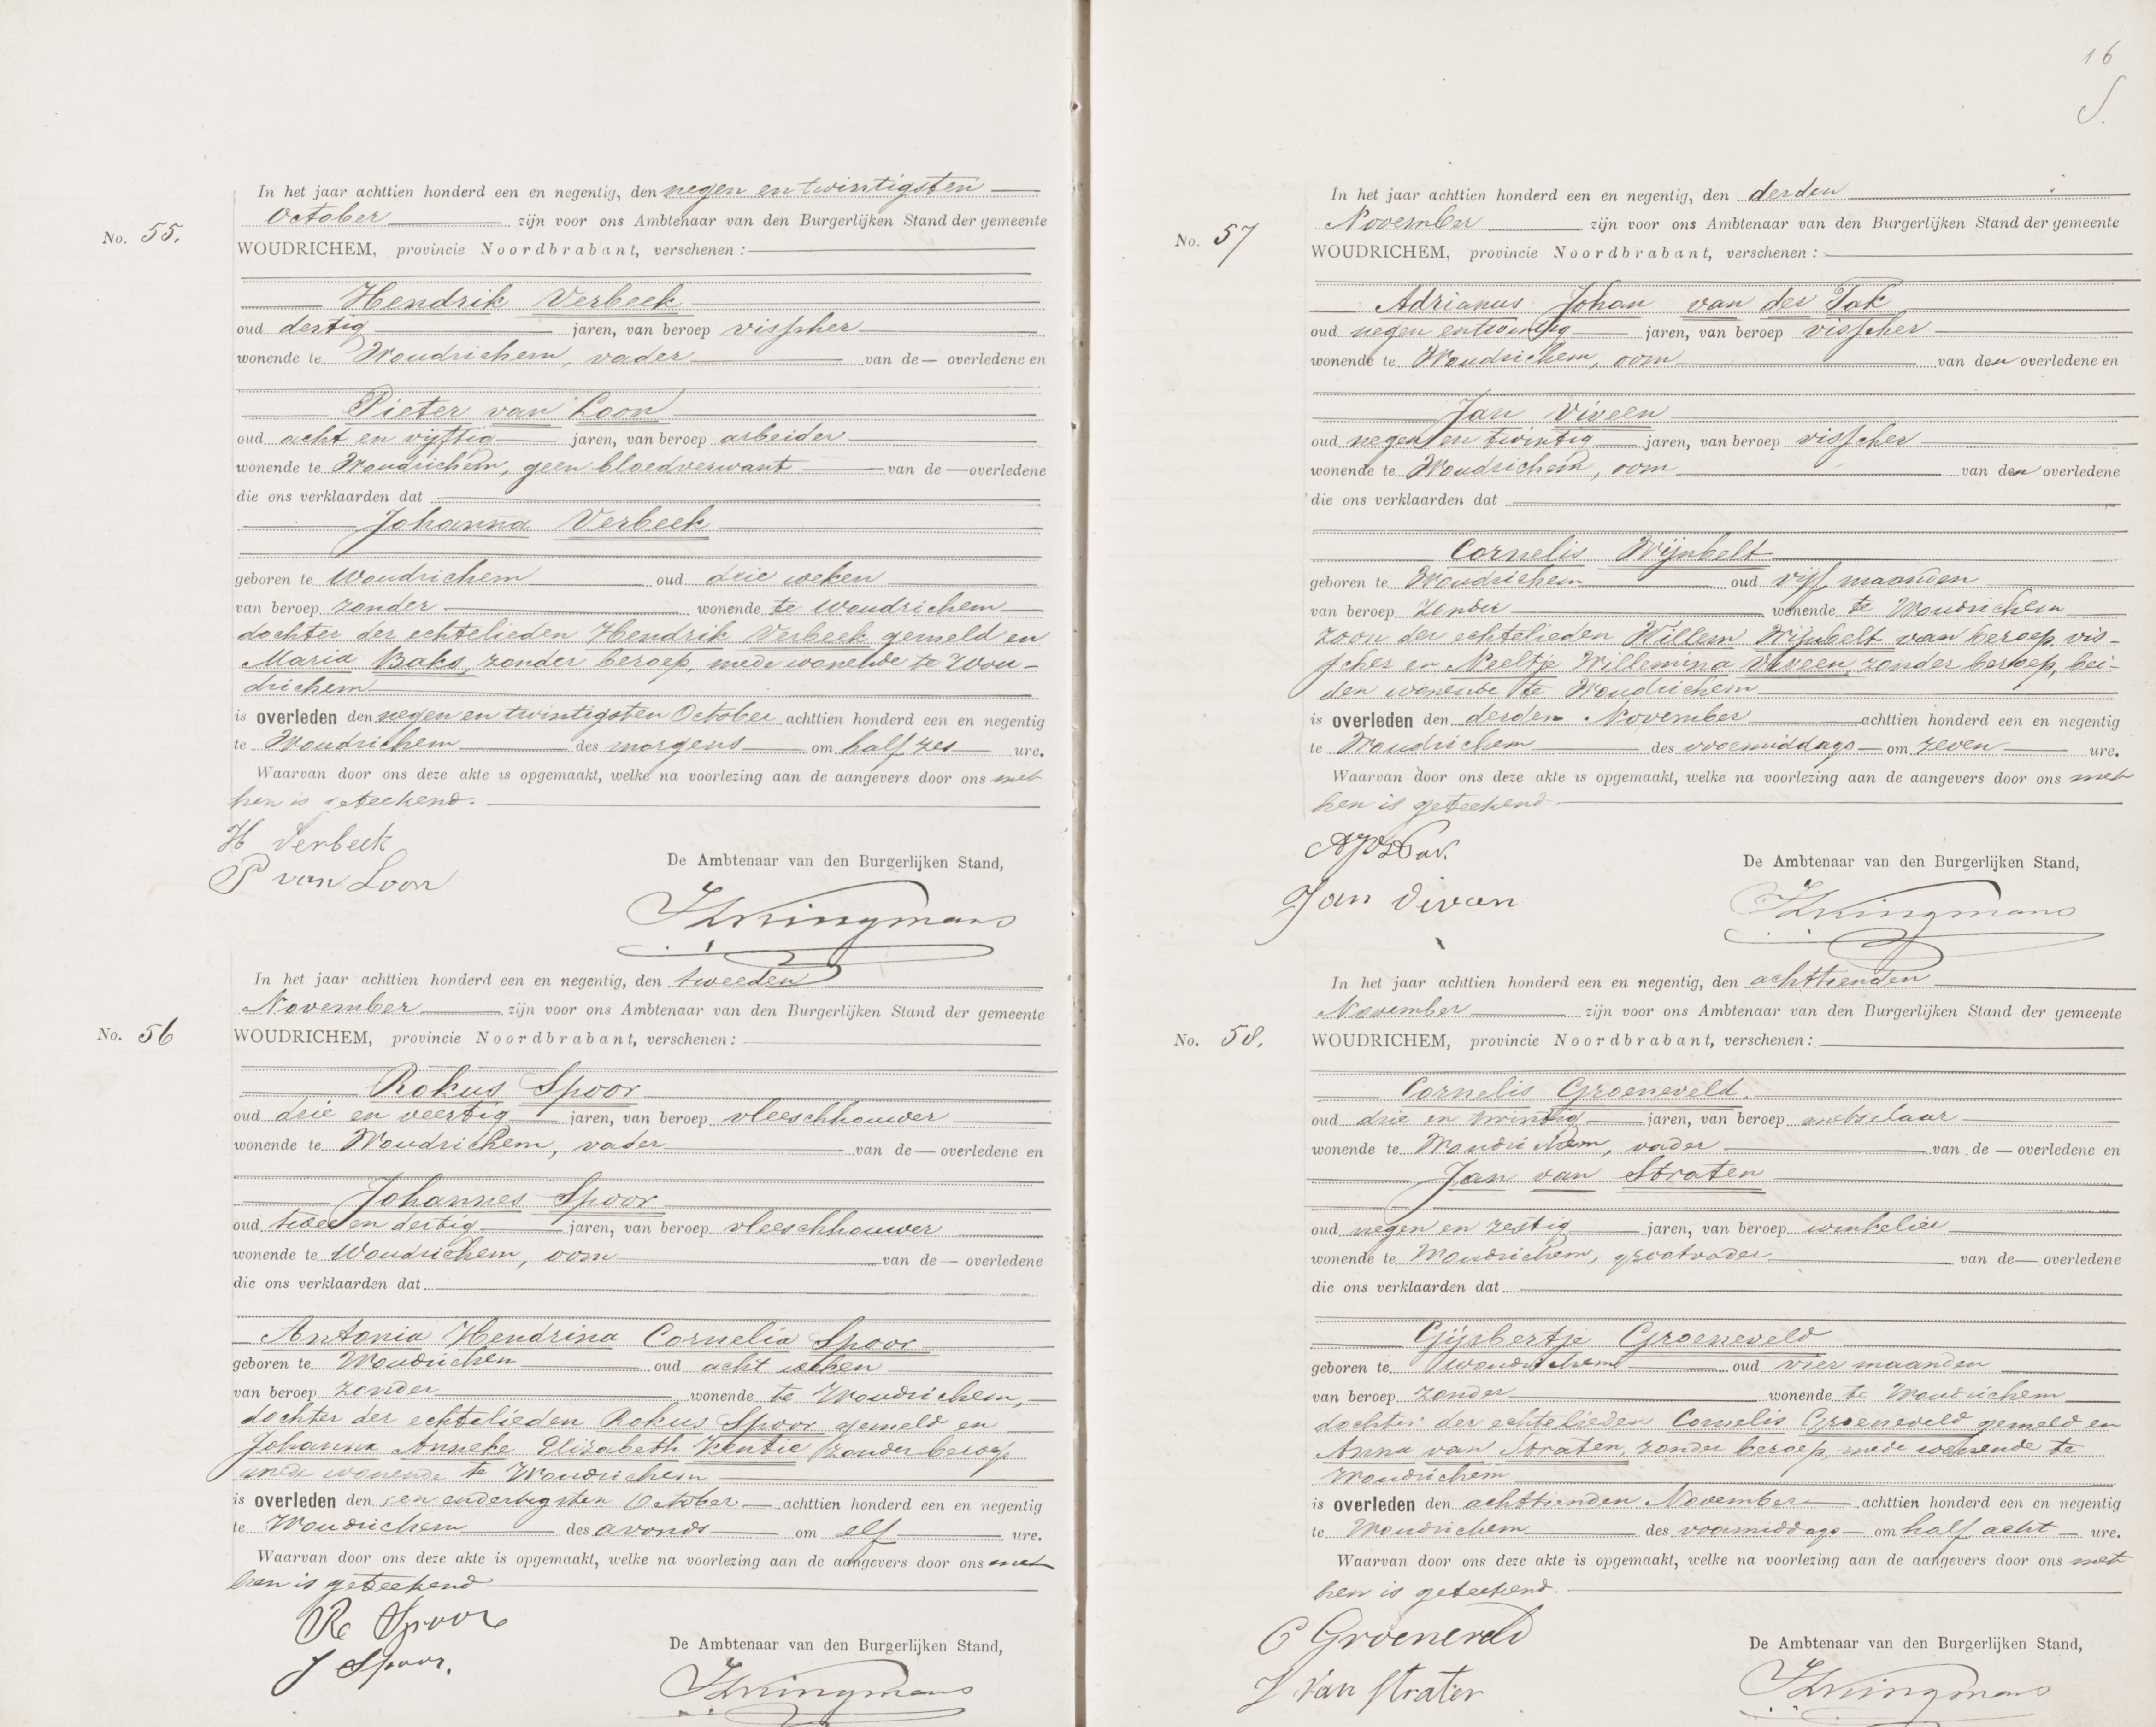 In het jaar achttien honderd een en negentig, den negen en twintigsten
No. 55.
October zijn voor ons Ambtenaar van den Burgerlijken Stand der gemeente
WOUDRICHEM, provincie Noordbrabant, verschenen:
Hendrik Verbeek
oud dertig jaren, van beroep visscher
wonende te Woudrichem, vader van de overledene en
Pieter van Loon
oud acht en vijftig jaren, van beroep arbeider
wonende te Woudrichem, geen bloedverwant van de overledene
die ons verklaarden dat
Johanna Verbeek
geboren te Woudrichem oud drie weken
van beroep zonder wonende te Woudrichem
dochter der echtelieden Hendrik Verbeek gemeld en
Maria Baks, zonder beroep, mede wonende te Wou-
drichem
is overleden den negen en twintigsten October achttien honderd een en negentig
te Woudrichem des morgens om half zes ure.
Waarvan door ons deze akte is opgemaakt, welke na voorlezing aan de aangevers door ons met
hen is geteekend.
H Verbeek
P van Loon
De Ambtenaar van den Burgerlijken Stand,
In het jaar achttien honderd een en negentig, den tweeden
November zijn voor ons Ambtenaar van den Burgerlijken Stand der gemeente
No. 56
WOUDRICHEM, provincie Noordbrabant, verschenen:
Rokus Spoor
oud drie en veertig jaren, van beroep vleeschhouwer
wonende te Woudrichem, vader van de overledene en
Johannes Spoor
oud twee en dertig jaren, van beroep vleeschhouwer
wonende te Woudrichem, oom van de overledene
die ons verklaarden dat
Antonia Hendrina Cornelia Spoor
geboren te Woudrichem oud acht weken
van beroep zonder wonende te Woudrichem,
dochter der echtelieden Rokus Spoor gemeld en
Johanna Anneke Elizabeth Kentie zonder beroep
mede wonende te Woudrichem
is overleden den een en dertigsten October achttien honderd een en negentig
te Woudrichem des avonds om elf ure.
Waarvan door ons deze akte is opgemaakt, welke na voorlezing aan de aangevers door ons met
hen is geteekend
R Spoor
J Spoor.
De Ambtenaar van den Burgerlijken Stand,
16
In het jaar achttien honderd een en negentig, den derden
November zijn voor ons Ambtenaar van den Burgerlijken Stand der gemeente
No. 57
WOUDRICHEM, provincie Noordbrabant, verschenen:
Adrianus Johan van der Tak
oud negen en twintig jaren, van beroep visscher
wonende te Woudrichem, oom van den overledene en
Jan Viveen
oud negen en twintig jaren, van beroep visscher
wonende te Woudrichem, oom van den overledene
die ons verklaarden dat
Cornelis Wijnbelt
geboren te Woudrichem oud vijf maanden
van beroep zonder wonende te Woudrichem
zoon der echtelieden Willem Wijnbelt van beroep vis-
scher en Neeltje Willemina Viveen, zonder beroep, bei-
den wonende te Woudrichem
is overleden den derden November achttien honderd een en negentig
te Woudrichem des voormiddags om zeven ure.
Waarvan door ons deze akte is opgemaakt, welke na voorlezing aan de aangevers door ons met
hen is geteekend
Jan Viveen
De Ambtenaar van den Burgerlijken Stand,
In het jaar achttien honderd een en negentig, den achttienden
November zijn voor ons Ambtenaar van den Burgerlijken Stand der gemeente
No. 58.
WOUDRICHEM, provincie Noordbrabant, verschenen:
Cornelis Groeneveld.
oud drie en twintig jaren, van beroep metselaar
wonende te Woudrichem, vader van de overledene en
Jan van Straten
oud negen en zestig jaren, van beroep winkelier
wonende te Woudrichem, grootvader van de overledene
die ons verklaarden dat
Gijsbertje Groeneveld
geboren te Woudrichem oud vier maanden
van beroep zonder wonende te Woudrichem
dochter der echtelieden Cornelis Groeneveld gemeld en
Anna van Straten, zonder beroep, mede wonende te
Woudrichem
is overleden den achttienden November achttien honderd een en negentig
te Woudrichem des voormiddags om half acht ure.
Waarvan door ons deze akte is opgemaakt, welke na voorlezing aan de aangevers door ons met
hen is geteekend.
C Groeneveld
J van Straten
De Ambtenaar van den Burgerlijken Stand,